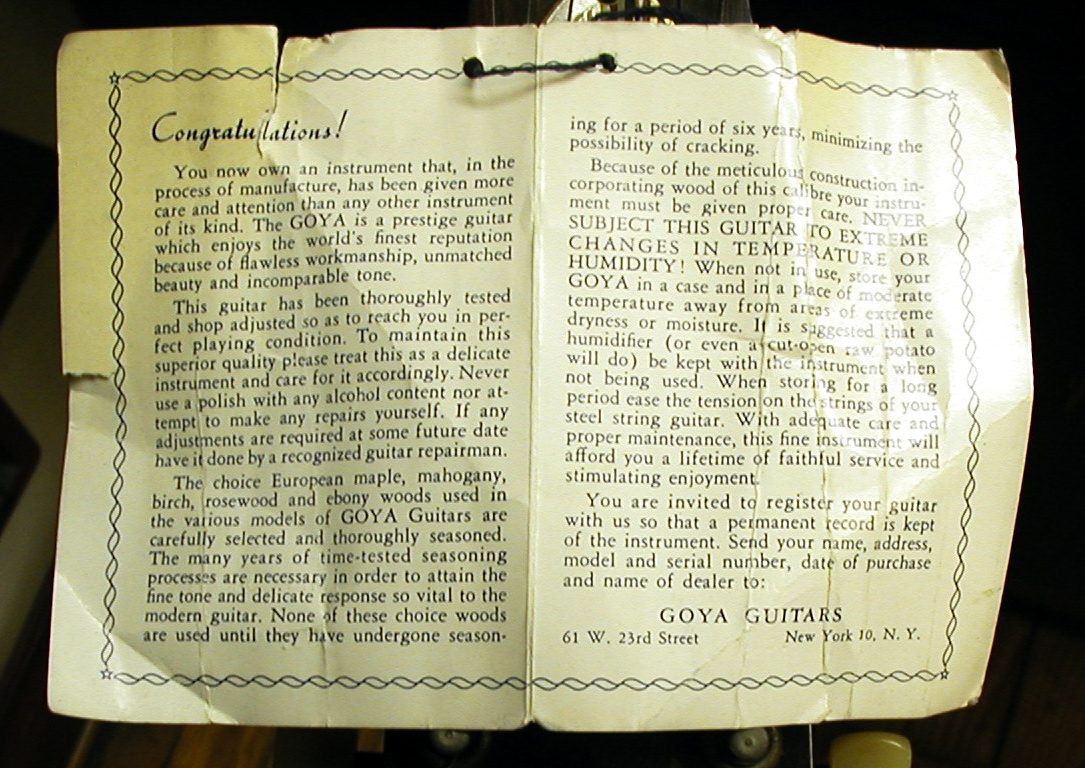 Congratulations!
You now own an instrument that, in the
process of manufacture, has been given more
care and attention than any other instrument
of its kind. The GOYA is a prestige guitar
which enjoys the world's finest reputation
because of flawless workmanship, unmatched
beauty and incomparable tone.
This guitar has been thoroughly tested
and shop adjusted so as to reach you in per-
fect playing condition. To maintain this
superior quality please treat this as a delicate
instrument and care for it accordingly. Never
use a polish with any alcohol content nor at-
tempt to make any repairs yourself. If any
adjustments are required at some future date
have it done by a recognized guitar repairman.
The choice European maple, mahogany,
birch, rosewood and ebony woods used in
the various models of GOYA Guitars are
carefully selected and thoroughly seasoned.
The many years of time-tested seasoning
processes are necessary in order to attain the
fine tone and delicate response so vital to the
modern guitar. None of these choice woods
are used until they have undergone season-
ing for a period of six years, minimizing the
possibility of cracking.
Because of the meticulous construction in-
corporating wood of this calibre your instru-
ment must be given proper care. NEVER
SUBJECT THIS GUITAR TO EXTREME
CHANGES IN TEMPERATURE OR
HUMIDITY! When not in use, store your
GOYA in a case and in a place of moderate
temperature away from areas of extreme
dryness or moisture. It is suggested that a
humidifier (or even a cut-open raw potato
will do) be kept with the instrument when
not being used. When storing for a long
period ease the tension on the strings of your
steel string guitar. With adequate care and
proper maintenance, this fine instrument will
afford you a lifetime of faithful service and
stimulating enjoyment.
You are invited to register your guitar
with us so that a permanent record is kept
of the instrument. Send your name, address,
model and serial number, date of purchase
and name of dealer to:
GOYA GUITARS
61 W. 23rd Street New York 10, N. Y.